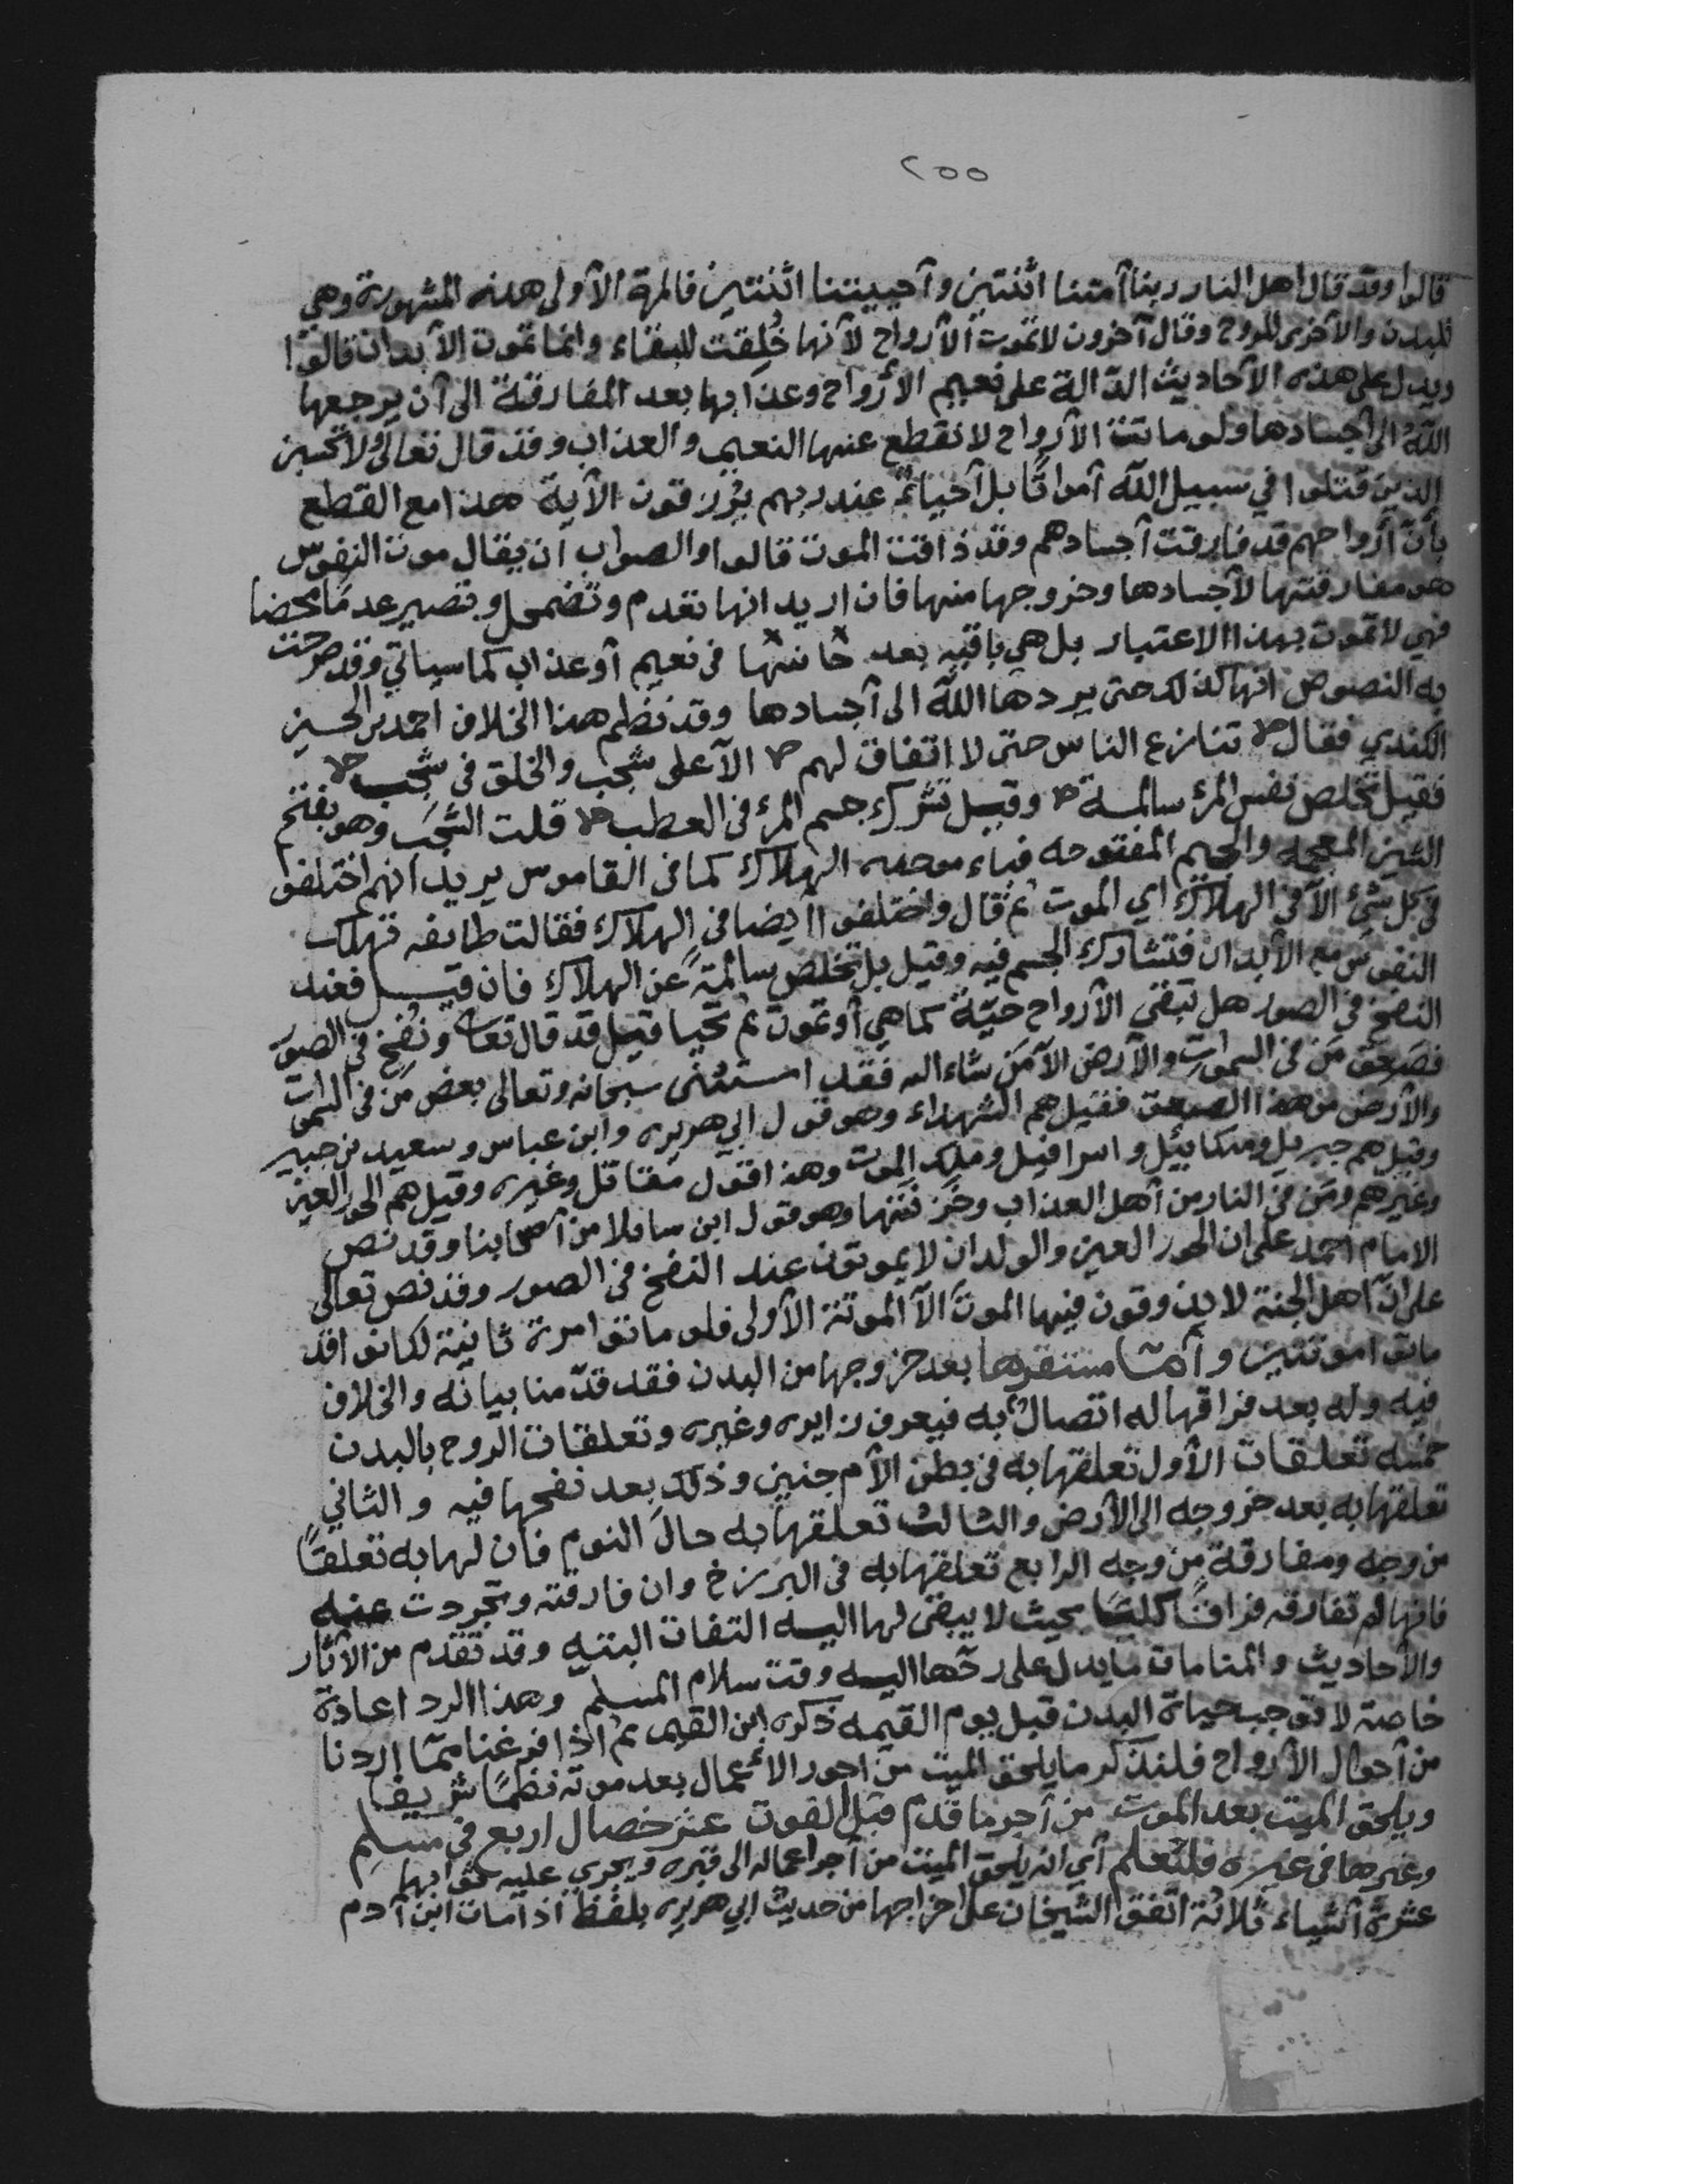 ٢٥٥
قالوا وقد قال اهل النار ربنا آمتنا اثنتين وآحييتنا اثنتين فالمرة الآولى هذه المشهورة وهي
للبدن والآخرى للروح وقال آخرون لا تموت الآرواح لآنها خُلِقت للبقاء وانما تموت الآبدان قالوا
ويدل على هذه الآحاديث الدّالة على نعيم الأرواح وعذابها بعد المفارقة الى آن يرجعها
اللّه الى آجسادها ولو ماتت الآرواح لانقطع عنها النعيم والعذاب وقد قال تعالى ولا تحسبن
الذين قتلوا في سبيل اللّه آمواتًا بل آحياءٌ عند ربهم يُرْزقون الآية هذا مع القطع
بأن آرواحهم قد فارقت آجسادهم وقد ذاقت الموت قالوا والصواب آن يقال موت النفوس
هو مفارقتها لآجسادها وخروجها منها فان اريد انها تعدم وتضمحل وتصير عدمًا محضا
فهي لا تموت بهذا الاعتبار بل هي باقيه بعد في نعيم آو عذاب كما سيآتي وقد صرحت
به النصوص انها كذلك حتى يردها اللّه الى آجسادها وقد نظم هذا الخلاف احمد بن الحسين
الكندي فقال تنازع الناس حتى لا اتفاق لهم الآ على شجب والخلق في شجب
فقيل تخلص نفس المرء سالمة وقيل تشرك جسم المرء في العطب قلت الشجَب وهو بفتح
الشين المعجمه والجيم المفتوحه فباء موحده الهلاك كما في القاموس يريد انهم اختلفوا
في كل شئ الآ في الهلاك اي الموت ثم قال واختلفوا ايضا في الهلاك فقالت طائفه تهلك
النفوس مع الآبدان فتشارك الجسم فيه وقيل بل تخلص سالمةً عن الهلاك فان قيل فعند
النفخ في الصور هل تبقى الآرواح حيّة كما هي آو تموت ثم تحيا قيل قد قال تعا ونُفِخ في الصور
فصَعِق مَن في السموات والآرض الآ مَن شاء الله فقد استثنى سبحانه وتعالى بعض مَن في السموات
والآرض من هذا الصعق فقيل هم الشهداء وهو قول ابي هريره وابن عباس وسعيد بن جبير
وقيل هم جبريل وميكائيل واسرافيل وملك الموت وهذا قول مقاتل وغيره وقيل هم الحور العين
وغيرهم ومَن في النار من آهل العذاب وخَزَنَتها وهو قول ابن ساقلا من آصحابنا وقد نص
الامام احمد على ان الحور العين والولدان لا يموتون عند النفخ في الصور وقد نص تعالى
على انّ آهل الجنة لا يذوقون فيها الموتَ الآ الموتة الآولى فلو ماتوا مرة ثانية لكانوا قد
ماتوا موتتين وآمّا مستقرها بعد خروجها من البدن فقد قدّمنا بيانه والخلاف
فيه وله بعد فراقها له اتصالٌ به فيعرف زايره وغيره وتعلقات الروح بالبدن
خمسه تعلقات الآول تعلقها به في بطن الآم جنين وذلك بعد نفخها فيه والثاني
تعلقها به بعد خروجه الى الآرض والثالث تعلقها به حالَ النوم فان لها به تعلقًا
من وجه ومفارقة من وجه الرابع تعلقها به في البرزخ وان فارقته وتجردت عنه
فانها لم تفارقه فراقًا كليًا بحيث لا يبقى لها اليه التفات البتيه وقد تقدم من الآثار
والآحاديث والمنامات ما يدل على ردّها اليه وقت سلام المسلم وهذا الرد اعادة
خاصة لا توجب حياة البدن قبل يوم القيمه ذكره ابن القيم ثم اذا فرغنا ممّا اردنا
من آحوال الآرواح فلنذكر ما يلحق الميت من اجور الأعمال بعد موته نظمًا شريفا
ويلحق الميت بعد الموت من آجر ما قدّم قبل الفوت عشر خصال اربع في مسلِم
وغيرها في غيره فلتعلم آي انه يلحق الميت من آجر اعماله الى قبره ويجري عليه ثوابها
عشرة آشياء ثلاثة اتّفق الشيخان على اخراجها من حديث ابي هريره بلفظ اذا مات ابن آدم